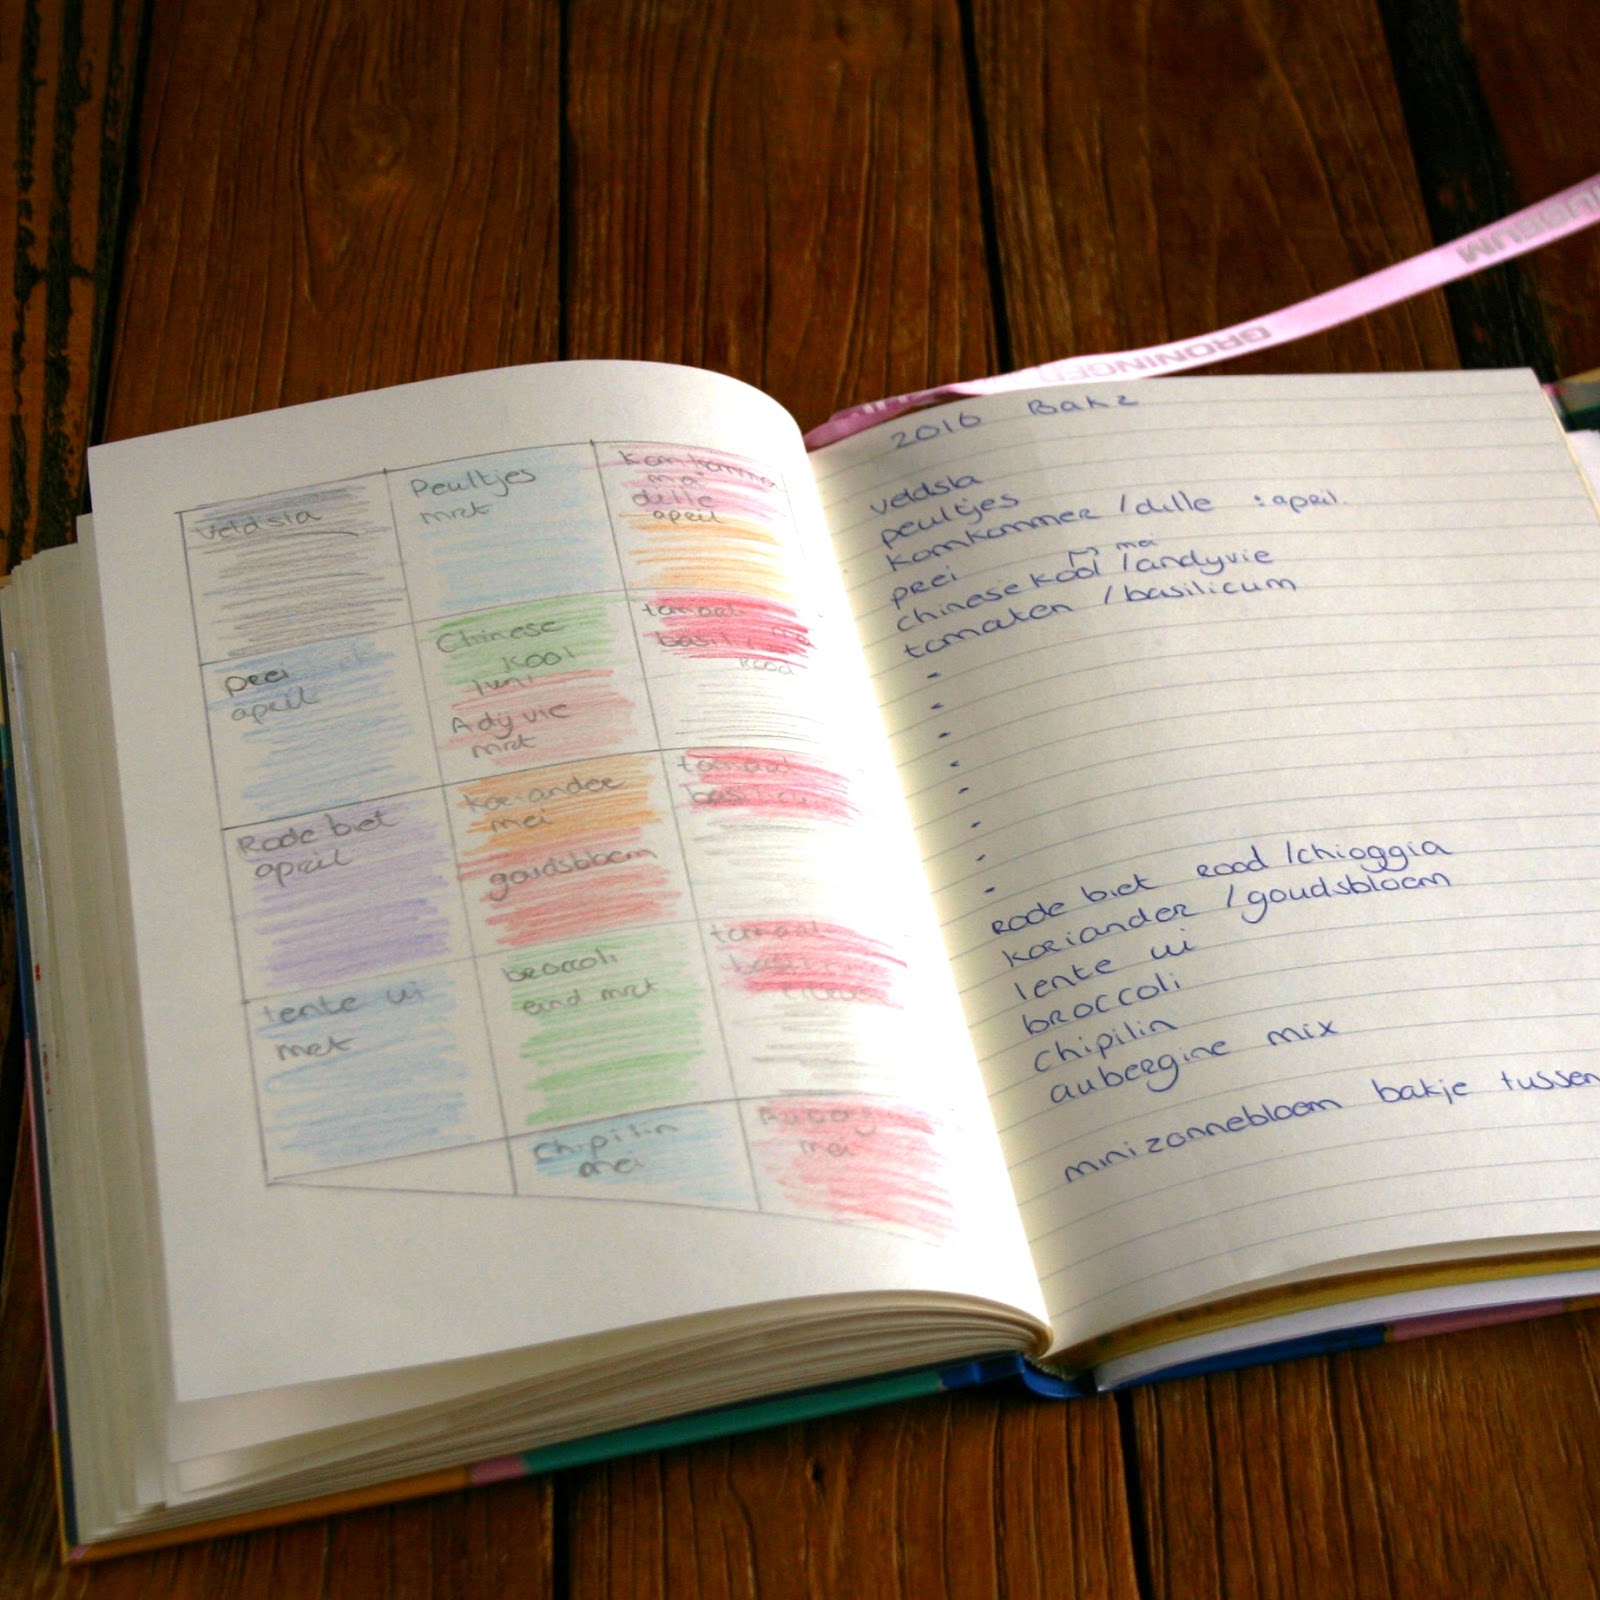 GRONINGER
MUSEUM
veldsla
Peultjes
mrt
Komkommer
dille
april
peei
april
Chinese
Kool
Juni
Adijvie
mrt
tomaat
basilicum
Rood
Rode biet
april
koriander
mei
goudsbloem
tomaat
basilicum
lente ui
mrt
broccoli
eind mrt
tomaat
Chipilin
mei
mei
2016 Bak 2
veldsla
peultjes
komkommer / dille : april.
prei
mei
chinese kool / andyvie
tomaten / basilicum
-
-
-
-
-
-
-
-
rode biet rood / chioggia
koriander / goudsbloem
lente ui
broccoli
chipilin
aubergine mix
mini zonnebloem bakje tussen